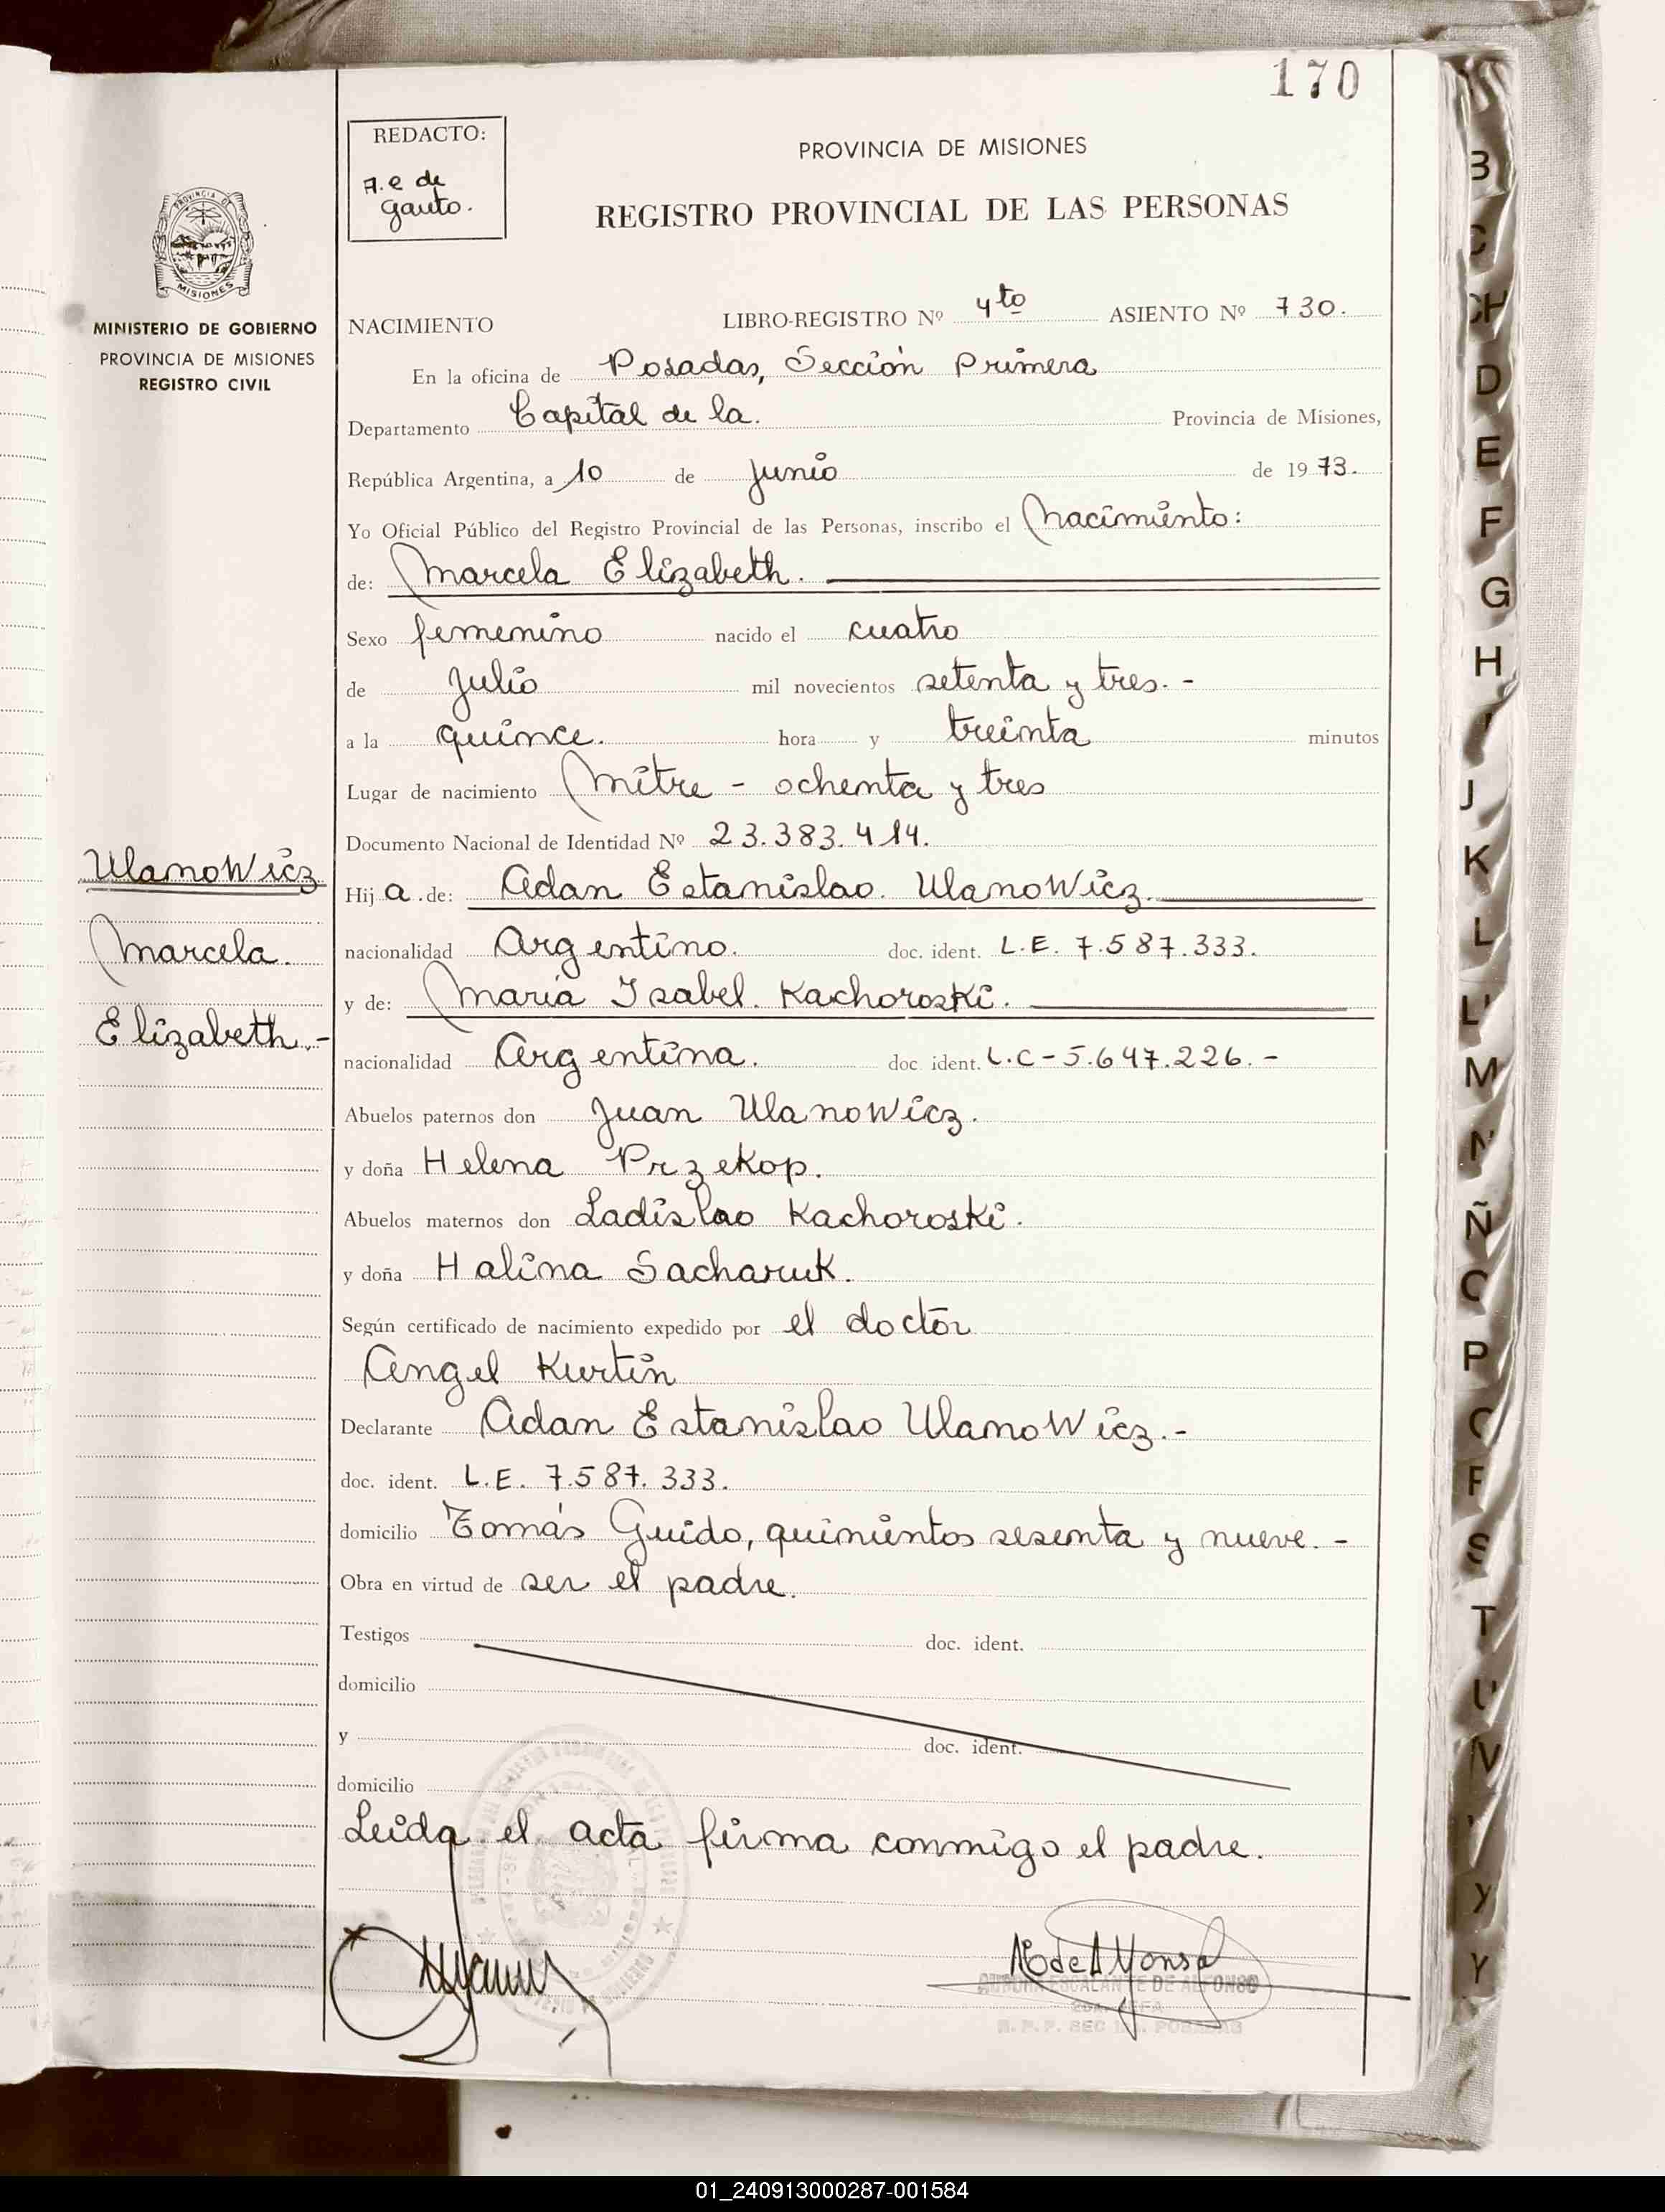 170
REDACTO:
A. e de
Gauto.
PROVINCIA DE MISIONES
REGISTRO PROVINCIAL DE LAS PERSONAS
PROVINCIA DE
MISIONES
MINISTERIO DE GOBIERNO
PROVINCIA DE MISIONES
REGISTRO CIVIL
NACIMIENTO LIBRO-REGISTRO Nº 4to ASIENTO Nº 730.
En la oficina de Posadas, Sección Primera
Departamento Capital de la. Provincia de Misiones,
República Argentina, a 10 de Junio de 1973.
Yo Oficial Público del Registro Provincial de las Personas, inscribo el Nacimiento:
de: Marcela Elizabeth.
Sexo femenino nacido el cuatro
de Julio mil novecientos setenta y tres. -
a la quince. hora y treinta minutos
Lugar de nacimiento Mitre - ochenta y tres
Documento Nacional de Identidad Nº 23.383.414.
Ulanowicz
Marcela.
Elizabeth.-
Hij a. de: Adan Estanislao. Ulanowicz.
nacionalidad Argentino. doc. ident. L.E. 7.587.333.
y de: María Isabel. Kachoroski.
nacionalidad Argentina. doc ident. L.C-5.647.226.-
Abuelos paternos don Juan Ulanowicz.
y doña Helena Przekop.
Abuelos maternos don Ladislao Kachoroski.
y doña Halina Sacharuk.
Según certificado de nacimiento expedido por el doctor
Angel Kurtin
Declarante Adan Estanislao Ulanowicz.-
doc. ident. L.E. 7.587.333.
domicilio Tomás Guido, quinientos sesenta y nueve. -
Obra en virtud de ser el padre.
Testigos doc. ident.
domicilio
y doc. ident.
domicilio
Leida el acta firma conmigo el padre.
ESCALANTE DE ALFONSO
B
D
E
F
G
H
I
J
K
L
M
N
Ñ
P
S
T
U
V
Y
01_240913000287-001584